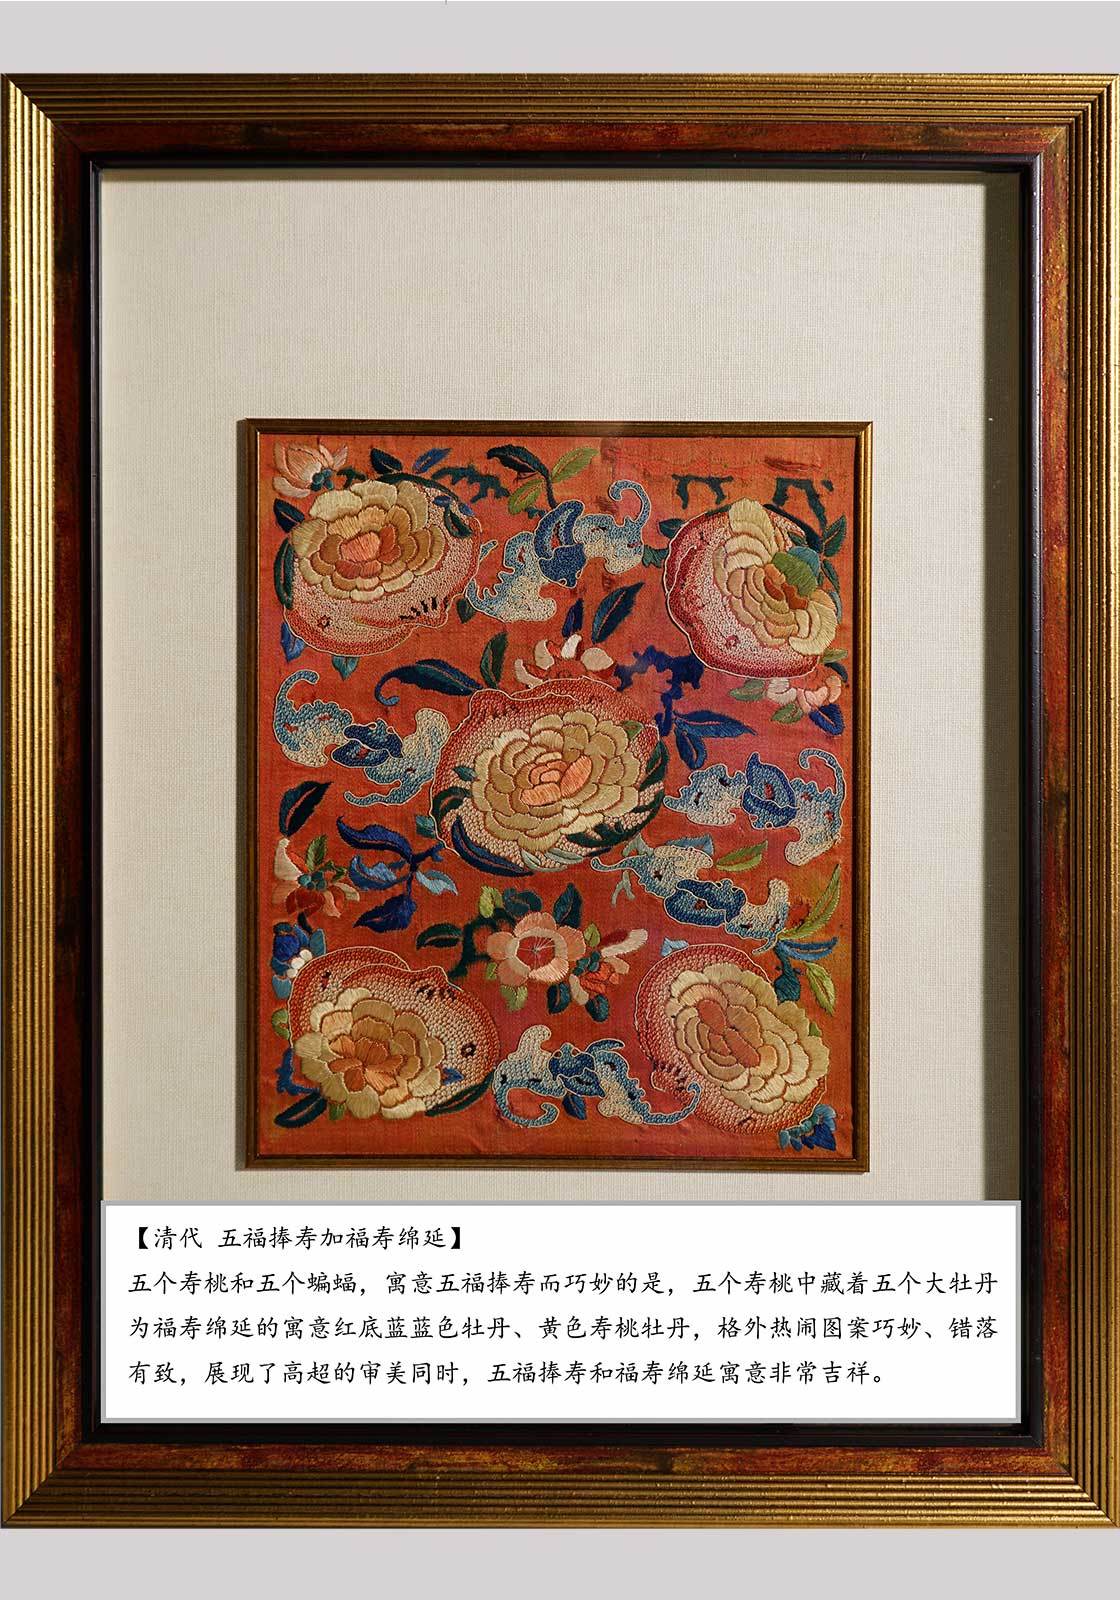 【清代 五福捧寿加福寿绵延】
五个寿桃和五个蝙蝠，寓意五福捧寿而巧妙的是，五个寿桃中藏着五个大牡丹
为福寿绵延的寓意红底蓝蓝色牡丹、黄色寿桃牡丹，格外热闹图案巧妙、错落
有致，展现了高超的审美同时，五福捧寿和福寿绵延寓意非常吉祥。